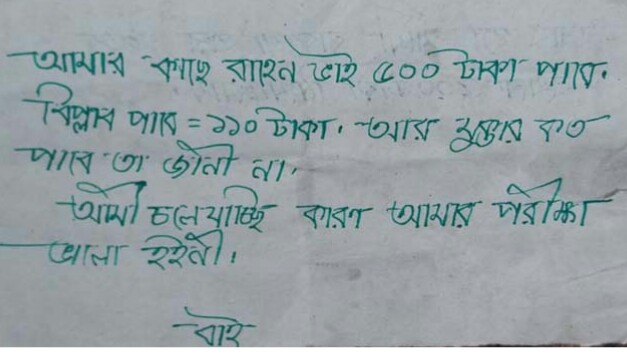 আমার কাছে রাহেন ভাই ৫০০ টাকা পাবে.
বিপ্লাব পাবে = ১১০ টাকা. আর কত
পাবে তা জানী না.
আমী চলে যাচ্ছি কারণ আমার পরীক্ষা
ভালা হইনী.
বাই